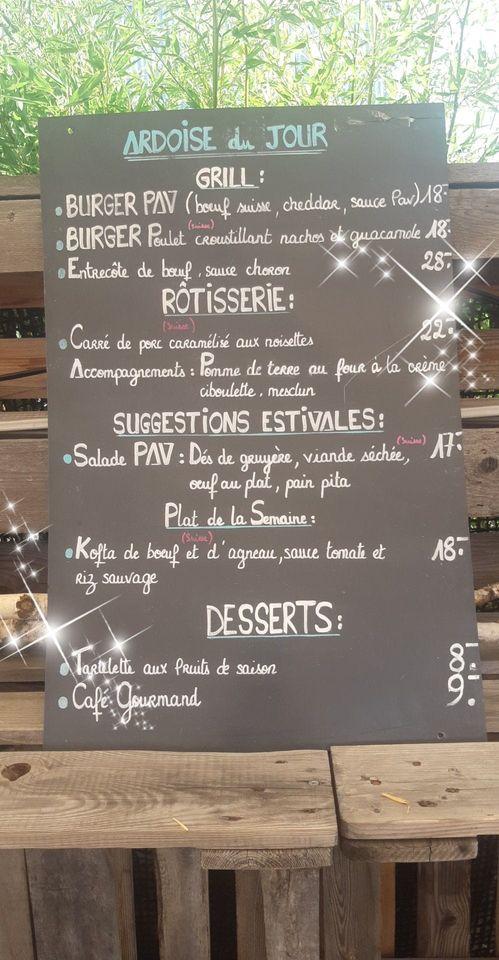 ARDOISE du JOUR
GRILL :
BURGER PAV (bœuf suisse, cheddar, sauce Pav) 18.-
(Suisse)
BURGER Poulet croustillant nachos et guacamole 18.-
Entrecôte de bœuf, sauce choron 28.-
RÔTISSERIE :
(Suisse)
Carré de porc caramélisé aux noisettes 22.-
Accompagnements : Pomme de terre au four à la crème
ciboulette, mesclun
SUGGESTIONS ESTIVALES :
(Suisse)
Salade PAV : Dés de gruyère, viande séchée, 17.-
œuf au plat, pain pita
Plat de la Semaine :
(Suisse)
Kofta de bœuf et d'agneau, sauce tomate et 18.-
Riz sauvage
DESSERTS :
Tartelette aux fruits de saison 8.-
Café Gourmand 9.-